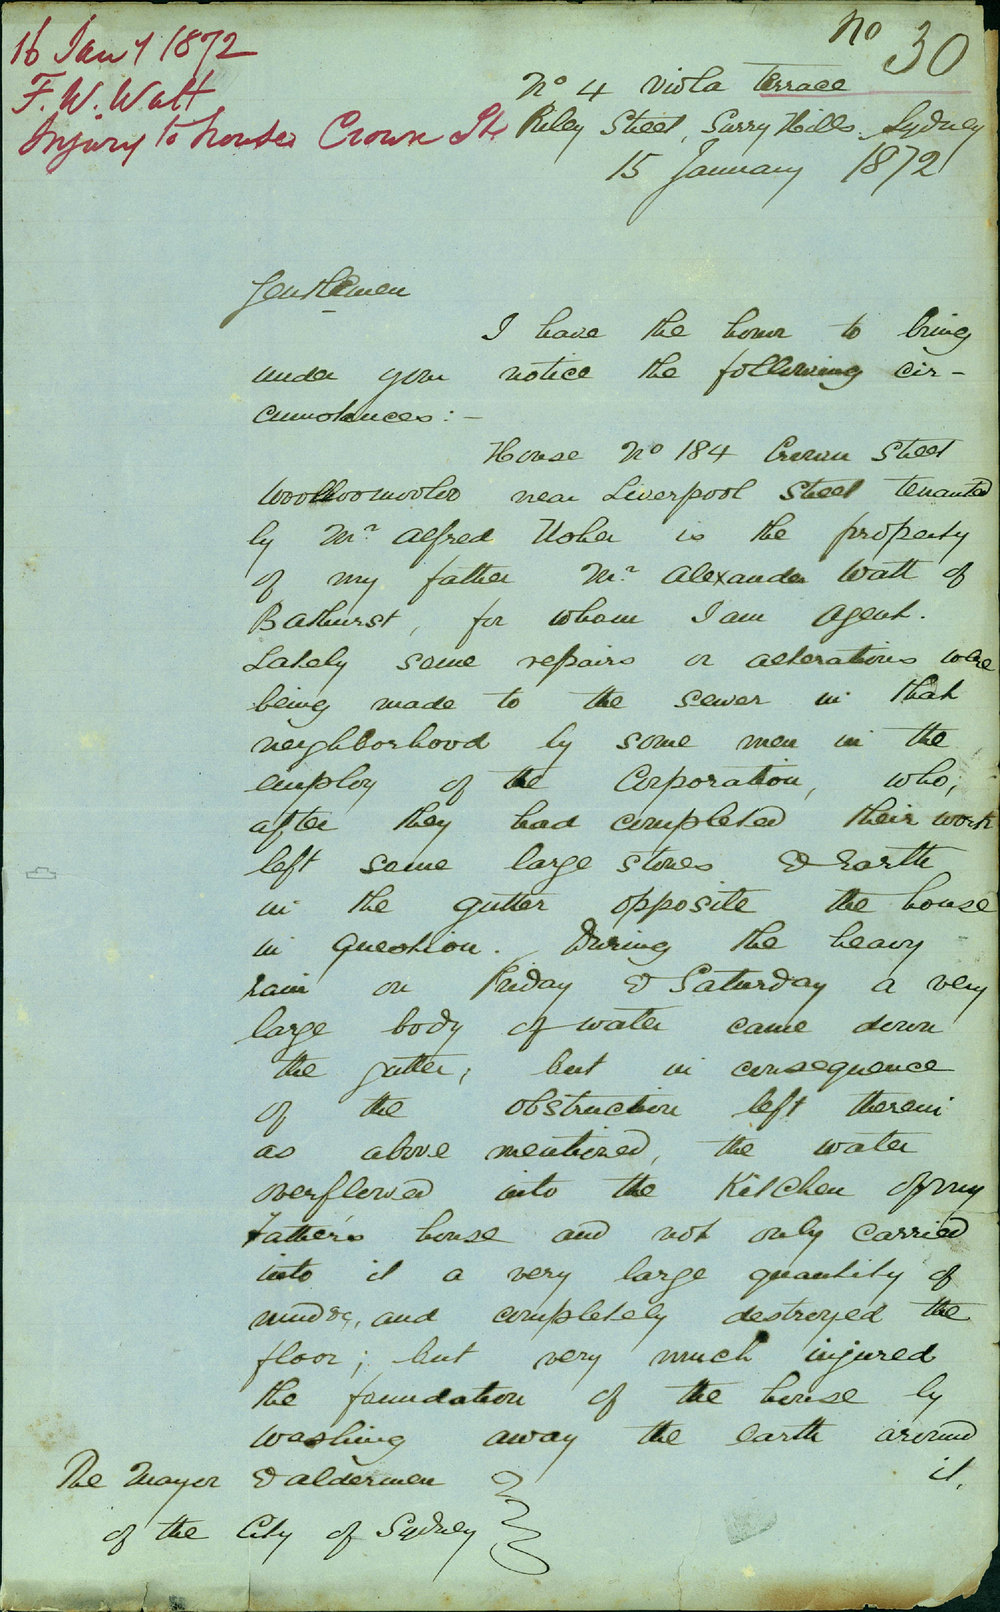 16 Jany 1872
F. W. Watt
Injury to houses Crown St.
No 30
No 4 Viola terrace
Riley Street, Surry Hills, Sydney
15 January 1872
Gentlemen
I have the honor to bring
under your notice the following cir-
cumstances:-
House No 184 Crown Street
Woolloomooloo near Liverpool Street tenanted
by Mr. Alfred Usher is the property
of my father Mr. Alexander Watt of
Bathurst, for whom I am Agent.
Lately some repairs or alterations were
being made to the sewer in that
neighborhood by some men in the
employ of the Corporation, who,
after they had completed their work
left some large stones & Earth
in the gutter opposite the house
in question. During the heavy
rain on Friday & Saturday a very
large body of water came down
the gutter; but in consequence
of the obstruction left therein
as above mentioned, the water
overflowed into the Kitchen of my
Father's house and not only carried
into it a very large quantity of
mud &c, and completely destroyed the
floor; but very much injured
the foundation of the house by
washing away the earth around
it.
The Mayor & Aldermen
of the City of Sydney